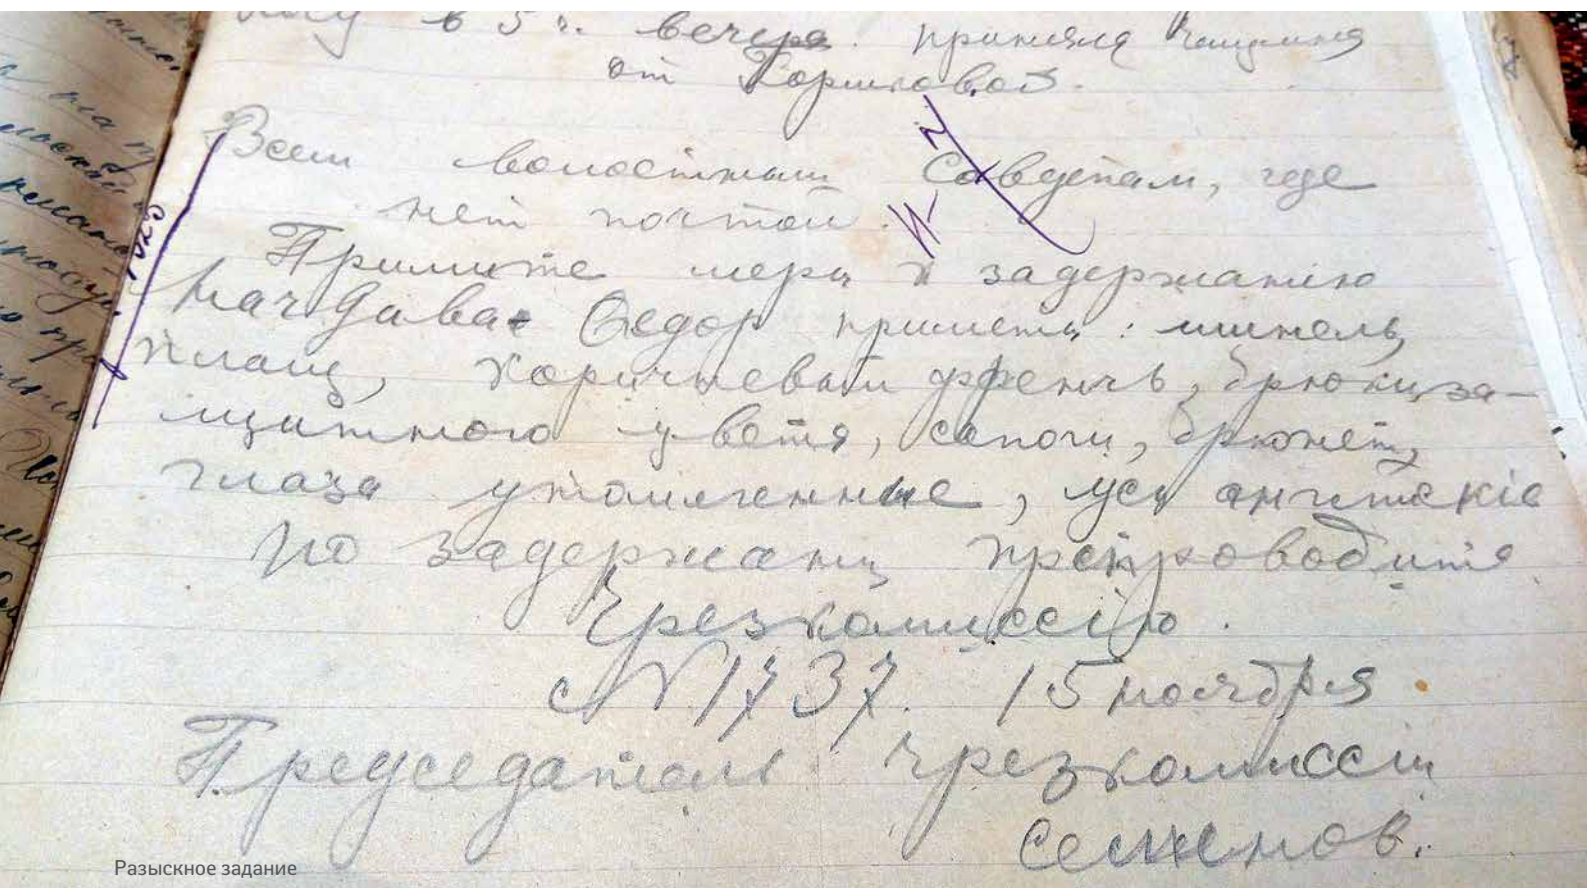 в 5 ч. вечера. приняла
от Горшковой.
Всем волостным Совдепам, где
нет почтой.
Примите меры к задержанію
Федор приметы: шинель,
плащ, коричневый френчъ, брюки за-
щитного цвета, сапоги, брюнет,
глаза утомленные, усы англискіе
По задержаніи препроводите
Чрезкомиссію.
№ 1737. 15 ноября
Председатель Чрезкомиссіи
Семенов.
Разыскное задание